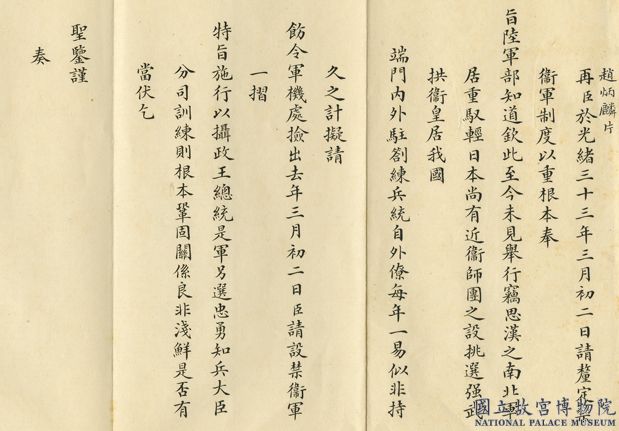 趙炳麟片
再臣於光緒三十三年三月初二日請釐定禁
衞軍制度以重根本奉
旨陸軍部知道欽此至今未見舉行竊思漢之南北軍
居重馭輕日本尚有近衞師團之設挑選强武
拱衞皇居我國
端門內外駐劄練兵統自外僚每年一易似非持
久之計擬請
飭令軍機處撿出去年三月初二日臣請設禁衞軍
一摺
特旨施行以攝政王總統是軍另選忠勇知兵大臣
分司訓練則根本鞏固關係良非淺鮮是否有
當伏乞
聖鑒謹
奏
國立故宮博物院
NATIONAL PALACE MUSEUM